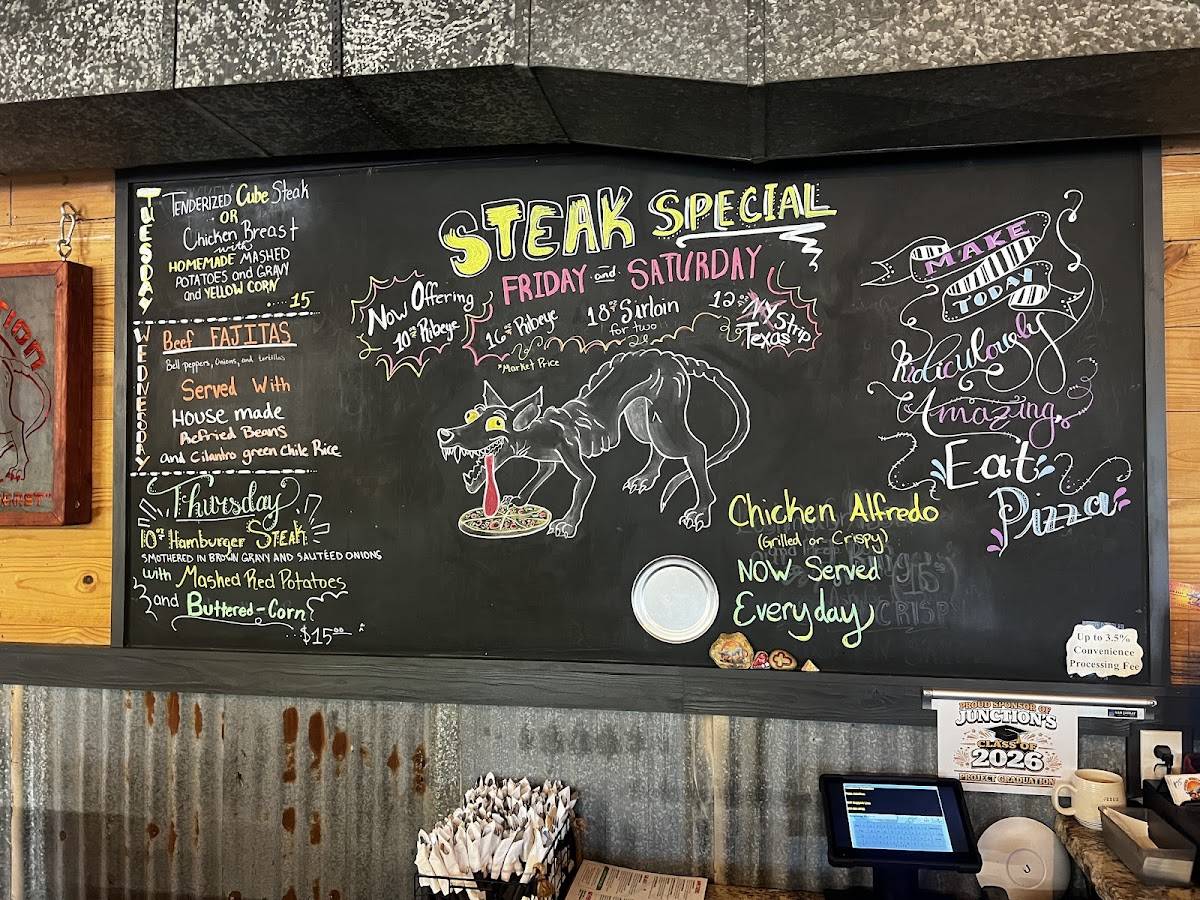 TUESDAY
TENDERIZED Cube Steak
OR
Chicken Breast
with
HOMEMADE MASHED
POTATOES and GRAVY
and YELLOW CORN
.....15
WEDNESDAY
Beef FAJITAS
Bell peppers, Onions, and tortillas
Served With
House made
Refried Beans
and Cilantro green Chile Rice
Thursday
10oz Hamburger STEAK
SMOTHERED IN BROWN GRAVY AND SAUTÉED ONIONS
with Mashed Red Potatoes
and Buttered-Corn
...$15
STEAK SPECIAL
FRIDAY and SATURDAY
Now Offering
10oz Ribeye
16oz Ribeye
18oz Sirloin
for two
12oz NY Strip
Texas
*Market Price
MAKE
TODAY
Ridiculously
Amazing
Eat
Pizza
Chicken Alfredo
(Grilled or Crispy)
NOW Served
Everyday
Up to 3.5%
Convenience
Processing Fee
PROUD SPONSOR OF
JUNCTION'S
CLASS OF
2026
PROJECT GRADUATION